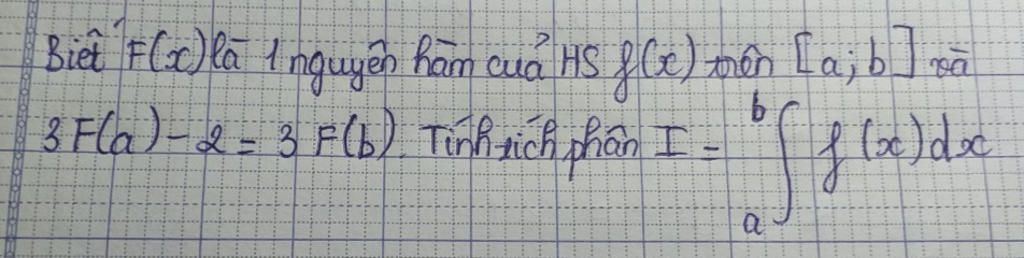 Biết F(x) là 1 nguyên hàm của HS f(x) trên [a;b] và
3F(a) - 2 = 3F(b). Tính tích phân I = ∫_a^b f(x)dx